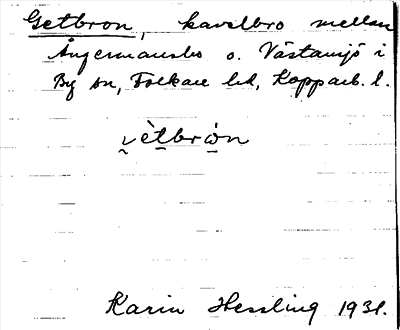 Getbron, kavelbro mellan
Ångermansbo o. Västansjö i
By sn, Folkare hd, Kopparb. l.
i̯èt̲brò̤n
Karin Hessling 1931.